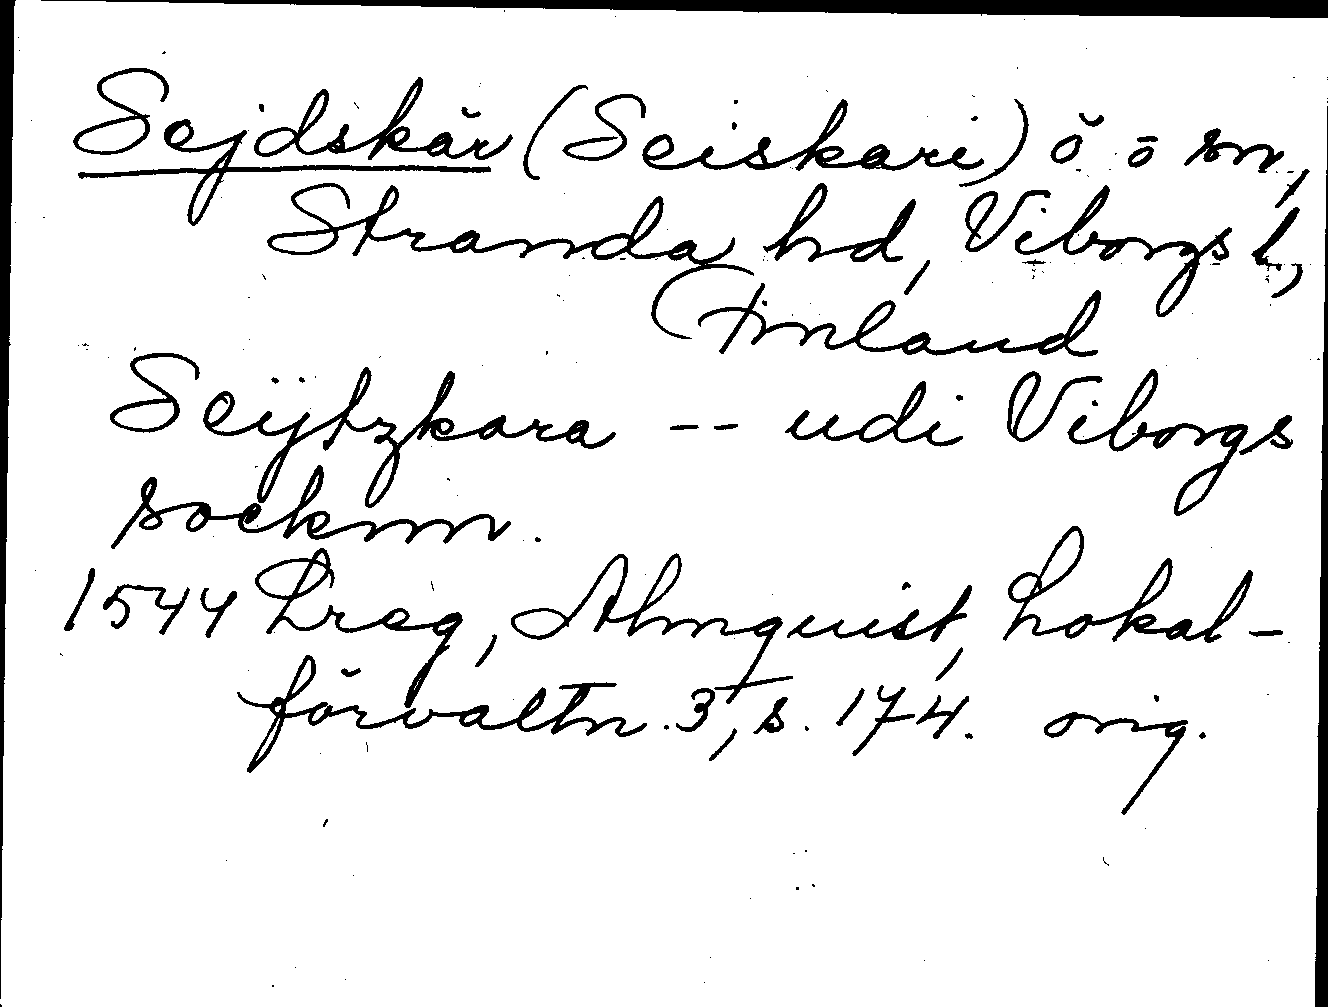 Sejdskär (Seiskari) ö o sn,
Stranda hd, Viborgs l,
Finland
Seijtzkara -- udi Viborgs
socknn.
1544 Lreg, Almquist, Lokal-
förvaltn. 3, s. 174. orig.